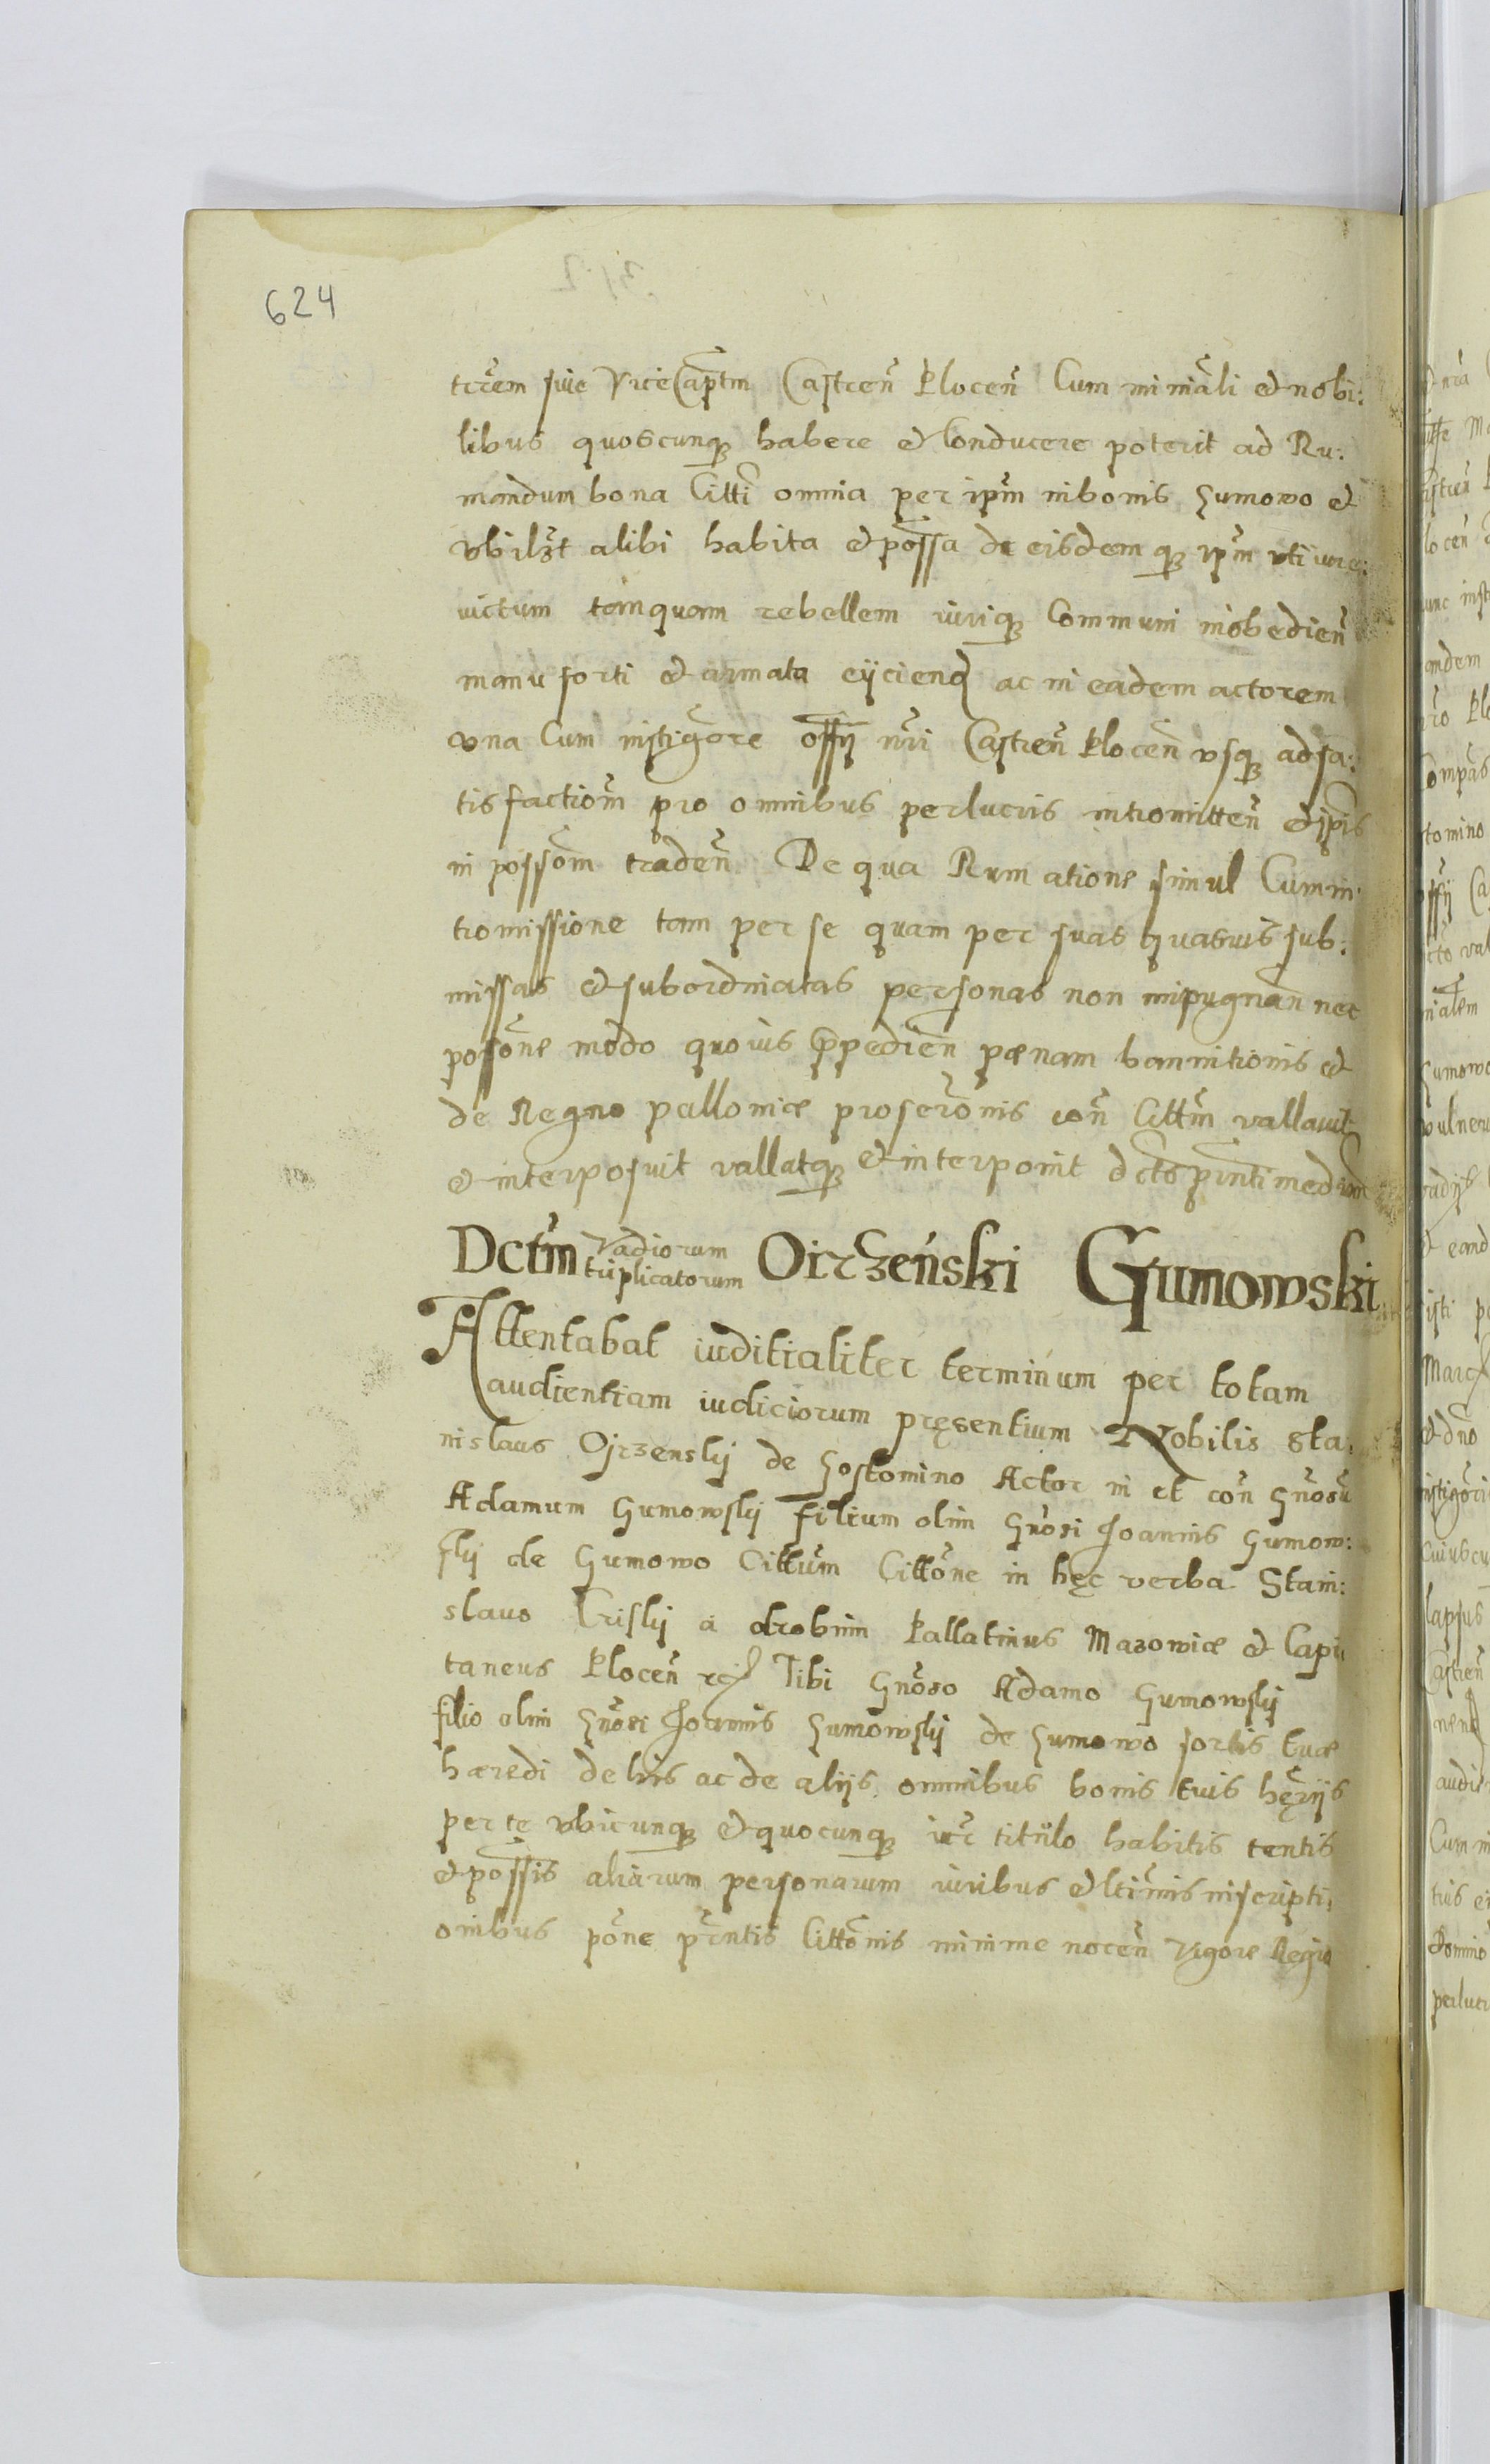 624
trẽm siue ViceCaptm̃ Castreñ Plocen̄ Cum miniãli et nobi:
libus quoscunq₃ habere et Conducere poterit ad Ru:
mandum bona Citti omnia per ipm̃ in bonis Gumowo et
vbilꝫt alibi habita et possa de eisdem q₃ ipm̃ uti iure
uictum tanquam rebellem iuriq₃ Communi inobedien̄
manu forti et armata eijciend ac in eadem actorem
vna Cum instigõre offij nr̃i Castren̄ Plocen̄ vsq₃ ad sa:
tisfactiom̃ pro omnibus perlucris intromitten̄ et ipis
in possom̃ traden̄ De qua Rumatione simul Cum in:
tromissione tam per se quam per suas quasuis sub:
missas et subordinatas personas non impugnan̄ nec
posõne modo quouis p̃pedien̄ pœnam bannitionis et
de Regno polloniæ proscrõnis con̄ Cittm̃ vallauit
et interposuit vallatq₃ et interponit dcto prnti mediante
Dctm̃ vadiorum triplicatorum Oirzeński Gumowski
Attentabat iuditialiter terminum per totam
audientiam iudiciorum pręsentium Nobilis Sta:
nislaus Ojrzenskj de Gostomino Actor in et con̄ Gnõsũ
Adamum Gumowskj Filium olim Gnõsi Joannis Gumow:
skj de Gumowo Cittũm Cittõne in hęc verba Stani:
slaus Criskj a drobnin Pallatinus Mazowiæ et Capi
taneus Plocen̄ rc Tibi Gnõso Adamo Gumowskj
filio olim Gnõsi Joannis Gumowskj de Gumowo sortis tuæ
hæredi de his ac de alijs omnibus bonis tuis hęrijs
per te vbicunq₃ et quocunq₃ iure titulo habitis tentis
et possis aliarum personarum iuribus et ltimis inscripti:
onibus põne prẽntis Cittõnis minime nocen̄ vigore Regio